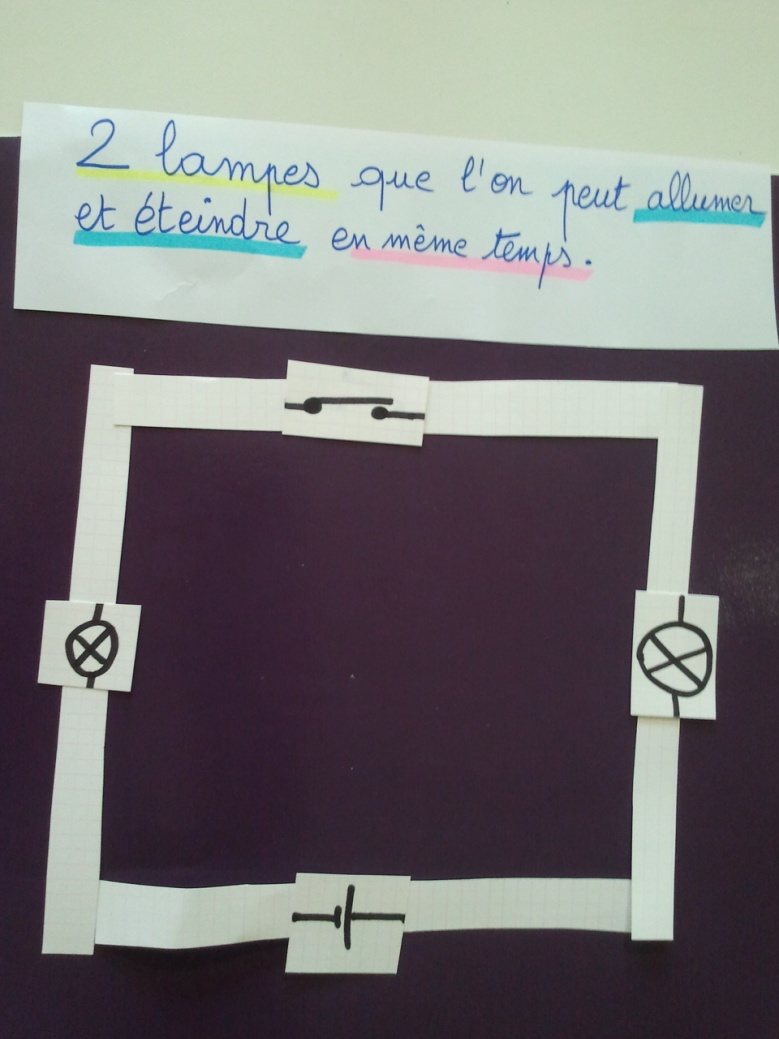 2 lampes que l'on peut allumer
et éteindre en même temps.